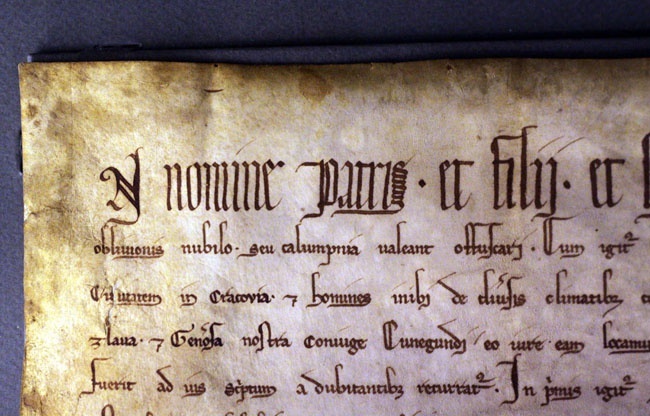 IN nomine patris · et filij · et
obliuionis nubilo · seu calumpnia ualeant offuscari · Cum igit᷑
Ciuitatem in Cracouia · ⁊ homines inibi de diu͛sis climatibꝫ
zlaua · ⁊ Gen͛osa nostra Coniuge Cunegundi eo iure eam locamu
fuerit ad sc͛ptum a dubitantibꝫ recurrat᷑ · In p͛mis igit᷑